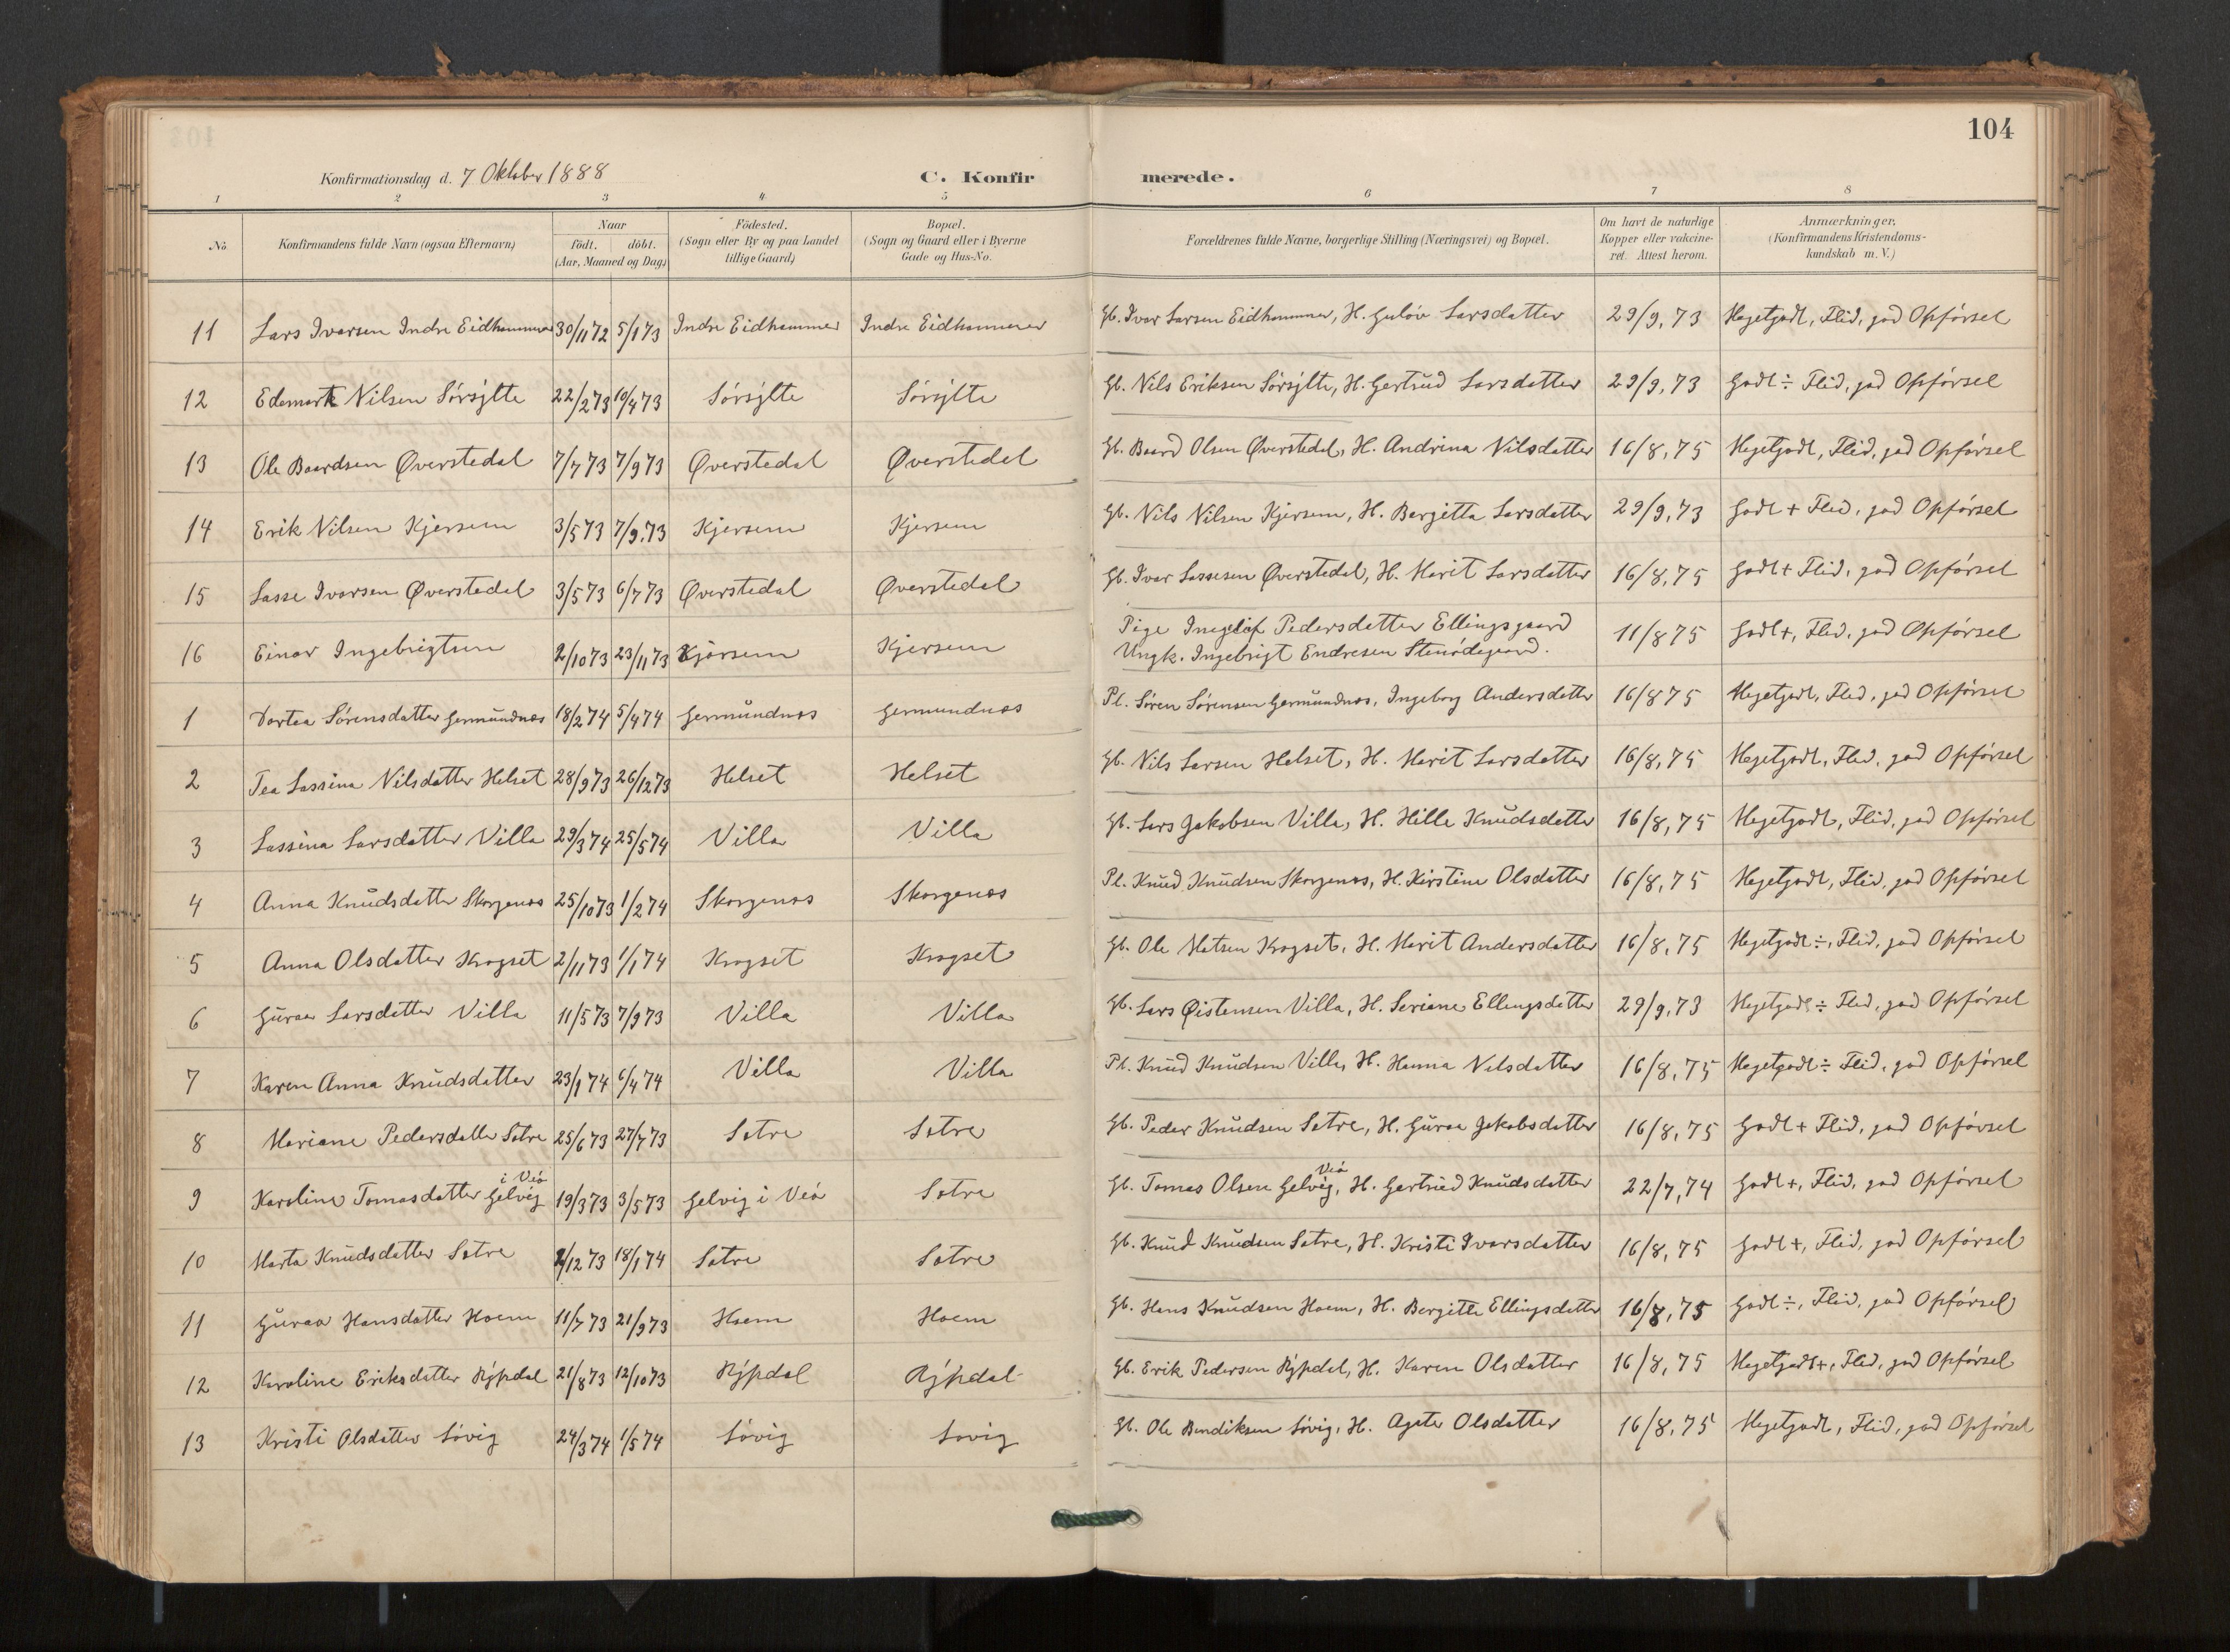 104
Konfirmationsdag d. 7 Oktober 1888 C. Konfirmerede.
1 2 3 4 5 6 7 8
No Konfirmandens fulde Navn (ogsaa Efternavn) Naar födt. döbt. (Aar, Maaned og Dag) Födested. (Sogn eller By og paa Landet tillige Gaard) Bopæl. (Sogn og Gaard eller i Byerne Gade og Hus-No. Forældrenes fulde Navne, borgerlige Stilling (Næringsvei) og Bopæl. Om havt de naturlige Kopper eller vakcineret. Attest herom. Anmærkninger. (Konfirmandens Kristendomskundskab m. V.)
11 Lars Ivarsen Indre Eidhammer 30/11 72 5/1 73 Indre Eidhammer Indre Eidhammer Gb. Ivar Larsen Eidhammer, H. Guløv Larsdatter 29/9, 73 Megetgodt, Flid, god Opførsel
12 Edemark Nilsen Sörsylte 22/2 73 10/4 73 Sörsylte Sörsylte Gb. Nils Eriksen Sörsylte, H. Gertrud Larsdatter 29/9, 73 Godt ÷ Flid, god Opførsel
13 Ole Baardsen Øverstedal 7/7 73 7/9 73 Øverstedal Øverstedal Gb. Baard Olsen Øverstedal, H. Andrina Nilsdatter 16/8, 75 Megetgodt, Flid, god Opførsel
14 Erik Nilsen Kjersem 3/5 73 7/9.73 Kjersem Kjersem Gb. Nils Nilsen Kjersem, H. Bergitta Larsdatter 29/9, 73 Godt + Flid, god Opførsel
15 Lasse Ivarsen Øverstedal 3/5 73 6/7 73 Øverstedal Øverstedal Gb. Ivar Lassesen Øverstedal, H. Marit Larsdatter 16/8, 75 Godt + Flid, god Opførsel
16 Einar Ingebrigtsen 2/10 73 23/11 73 Kjørsem Kjersem Pige Ingeløf Pedersdatter Ellingsgaard 11/8 75 Godt +, Flid, god Opførsel
Ungk. Ingebrigt Endresen Stenødegaard.
1 Dortea Sörensdatter Germundnæs 18/2 74 5/4 74 Germundnæs Germundnæs Pl. Sören Sörensen Germundnæs, Ingeborg Andersdatter 16/8 75 Megetgodt, Flid, god Opførsel
2 Tea Lassina Nilsdatter Helset 28/9 73 26/12 73 Helset Helset Gb. Nils Larsen Helset, H. Marit Larsdatter 16/8, 75 Megetgodt, Flid, god Opførsel
3 Lassina Larsdatter Villa 29/3 74 25/5 74 Villa Villa Gb. Lars Jakobsen Villa, H. Hille Knudsdatter 16/8, 75 Megetgodt, Flid, god Opførsel
4 Anna Knudsdatter Skorgenæs 25/10 73 1/2 74 Skorgenæs Skorgenæs Pl. Knud Knudsen Skorgenæs, H. Kirstine Olsdatter 16/8, 75 Megetgodt, Flid, god Opførsel
5 Anna Olsdatter Krogset 2/11 73 1/1 74 Krogset Krogset Gb. Ole Matsen Krogset, H. Marit Andersdatter 16/8, 75 Megetgodt ÷, Flid, god Opførsel
6 Guraa Larsdatter Villa 11/5 73 7/9 73 Villa Villa Gb. Lars Øistensen Villa, H. Seriane Ellingsdatter 29/9, 73 Megetgodt ÷ Flid, god Opførsel
7 Karen Anna Knudsdatter 23/1 74 6/4 74 Villa Villa Pl. Knud Knudsen Villa, H. Hanna Nilsdatter 16/8, 75 Megetgodt ÷ Flid, god Opførsel
8 Mariane Pedersdatter Sætre 25/6 73 27/7 73 Sætre Sætre Gb. Peder Knudsen Sætre, H. Guraa Jakobsdatter 16/8, 75 Godt + Flid, god Opførsel
9 Karoline Tomasdatter Gelvig i Veö 19/3 73 3/5 73 Gelvig i Veö Sætre Gb. Tomas Olsen Gelvig, Veö H. Gertrud Knudsdatter 22/7, 74 Godt +, Flid, god Opførsel
10 Marta Knudsdatter Sætre /12 73 18/1 74 Sætre Sætre Gb. Knud Knudsen Sætre, H. Kristi Ivarsdatter 16/8, 75 Godt +, Flid, god Opførsel
11 Guraa Hansdatter Hoem 11/7 73 21/9 73 Hoem Hoem Gb. Hans Knudsen Hoem, H. Bergitte Ellingsdatter 16/8, 75 Godt ÷, Flid, god Opførsel
12 Karoline Eriksdatter Rypdal 21/8 73 12/10 73 Rypdal Rypdal Gb. Erik Pedersen Rypdal, H. Karen Olsdatter 16/8, 75 Megetgodt +, Flid, god Opførsel
13 Kristi Olsdatter Sövig 24/3 74 1/5 74 Sövig Sövig Gb. Ole Bendiksen Sövig, H. Agate Olsdatter 16/8, 75 Megetgodt, Flid, god Opførsel